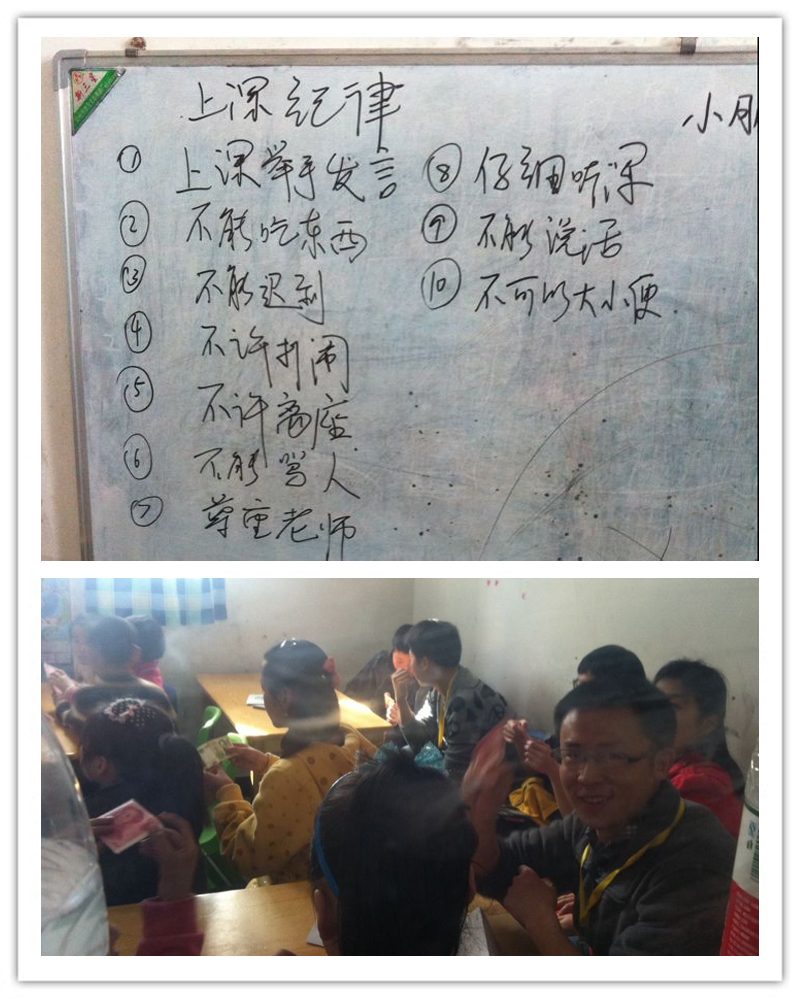 上课纪律
① 上课举手发言
② 不能吃东西
③ 不能迟到
④ 不许打闹
⑤ 不许离座
⑥ 不能骂人
⑦ 尊重老师
⑧ 仔细听课
⑨ 不能说话
⑩ 不可以大小便
小朋